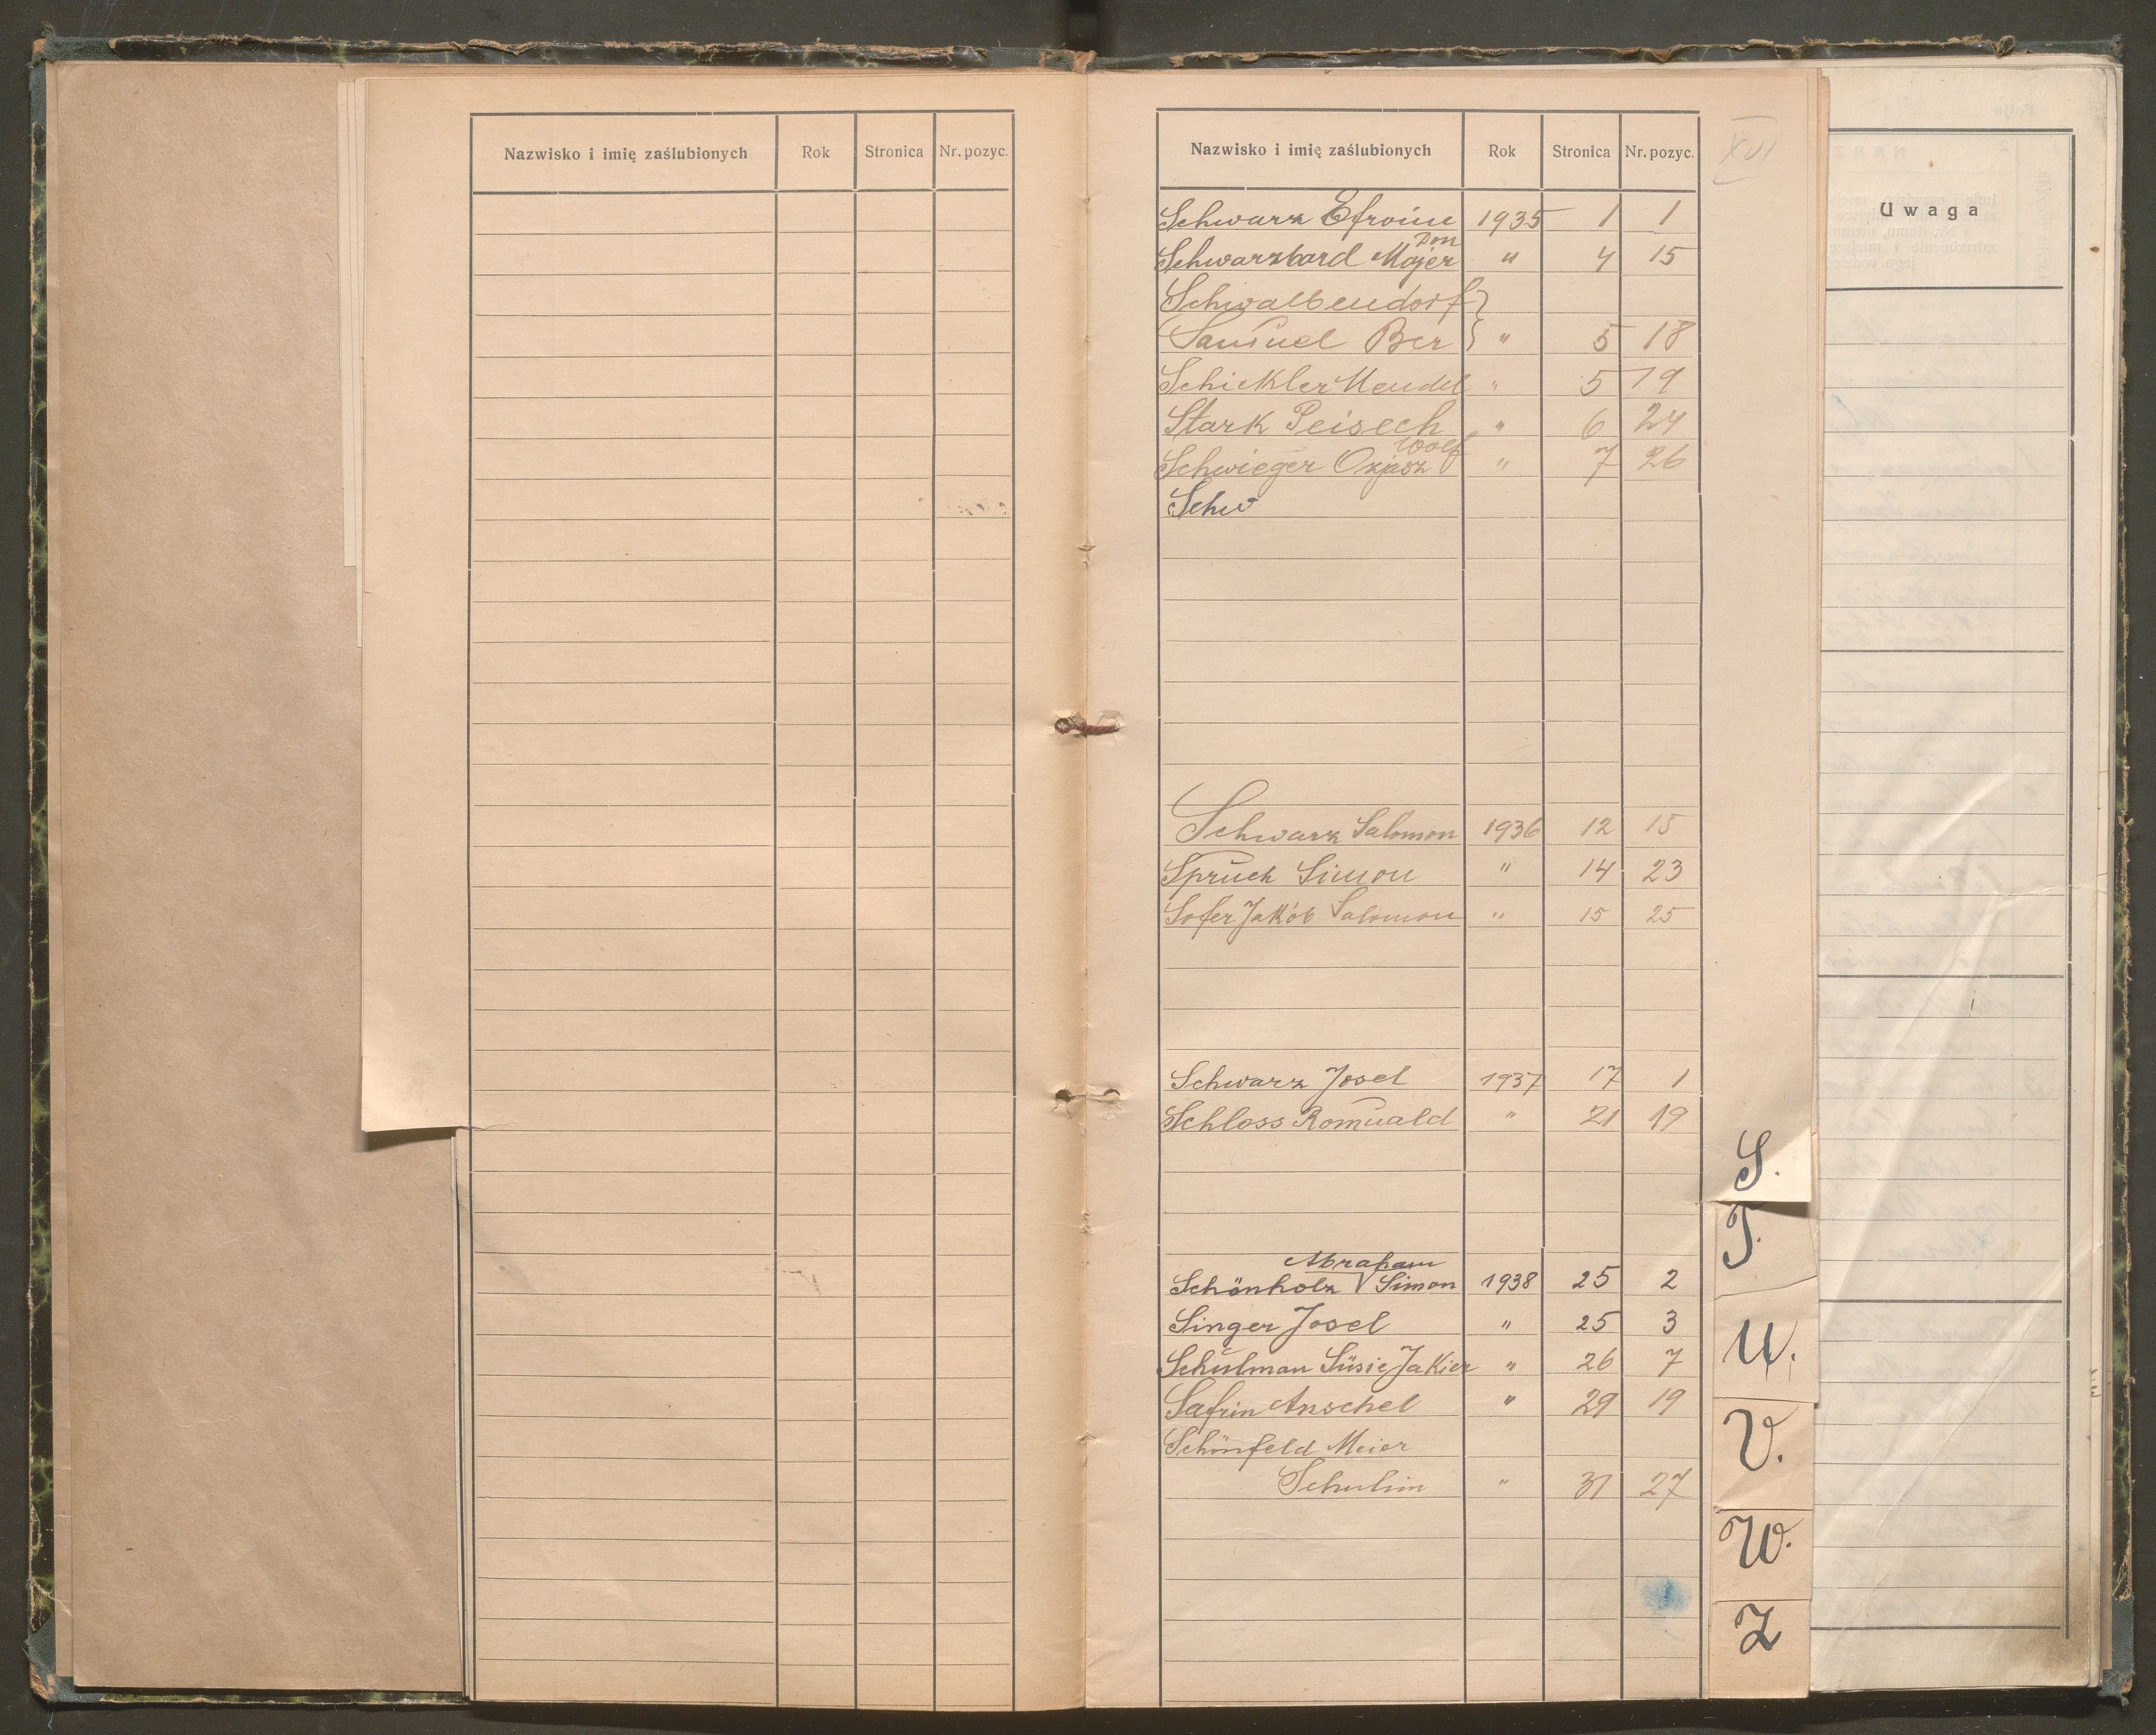 Nazwisko i imię zaślubionych Rok Stronica Nr. pozyc.
Nazwisko i imię zaślubionych Rok Stronica Nr. pozyc.
XVI
Schwarz Efroim 1935 1 1
Don
Schwarzbard Majer " 4 15
Schwalbendorf }
Samuel Ber } " 5 18
Schickler Mendel " 5 19
Stark Peisech " 6 24
Wolf
Schwieger Ozjasz " 7 26
Schw
Schwarz Salomon 1936 12 15
Spruch Simon " 14 23
Sofer Jakób Salomon " 15 25
Schwarz Josel 1937 17 1
Schloss Romuald " 21 19
Abraham
Schönholz Simon 1938 25 2
Singer Josel " 25 3
Schulman Süsie Jakier " 26 7
Safrin Anschel " 29 19
Schönfeld Meier
Schulim " 31 27
S.
T.
U.
V.
W.
Z
Uwaga